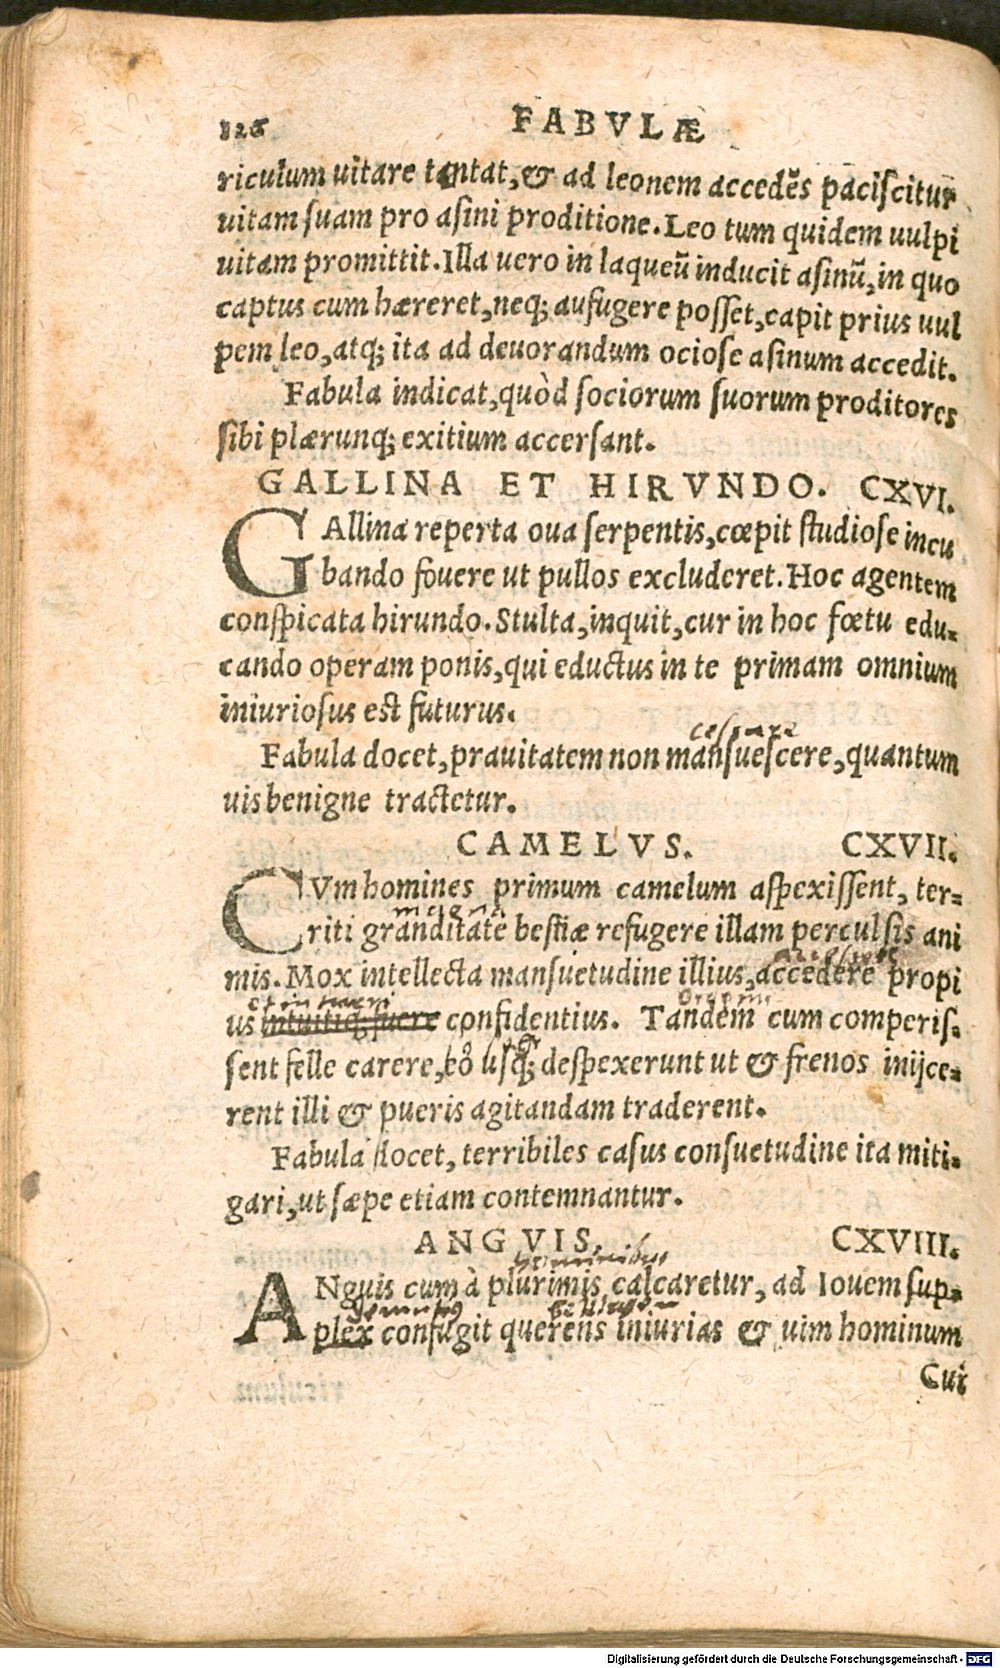 126 FABVLÆ
riculum uitare tentat, & ad leonem accedẽs paciscitur
uitam suam pro asini proditione. Leo tum quidem uulpi
uitam promittit. Illa uero in laqueũ inducit asinũ, in quo
captus cum hæreret, neq; aufugere posset, capit prius uul
pem leo, atq; ita ad deuorandum ociose asinum accedit.
Fabula indicat, quòd sociorum suorum proditores
sibi plærunq; exitium accersant.
GALLINA ET HIRVNDO. CXVI.
GAllina reperta oua serpentis, cœpit studiose incu
bando fouere ut pullos excluderet. Hoc agentem
conspicata hirundo. Stulta, inquit, cur in hoc fœtu edu-
cando operam ponis, qui eductus in te primam omnium
iniuriosus est futurus.
Fabula docet, prauitatem non mansuescere, quantum
uis benigne tractetur.
CAMELVS. CXVII.
CVm homines primum camelum aspexissent, ter-
riti granditatẽ bestiæ refugere illam perculsis ani
mis. Mox intellecta mansuetudine illius, accedere propi
us intuitiq; fuere confidentius. Tandem cum comperis-
sent felle carere, eò usq; despexerunt ut & frenos inijce-
rent illi & pueris agitandam traderent.
Fabula docet, terribiles casus consuetudine ita miti-
gari, ut sæpe etiam contemnantur.
ANGVIS. CXVIII.
ANguis cum à plurimis calcaretur, ad Iouem sup-
plex confugit querens iniurias & uim hominum
Cui
Digitalisierung gefördert durch die Deutsche Forschungsgemeinschaft - DFG